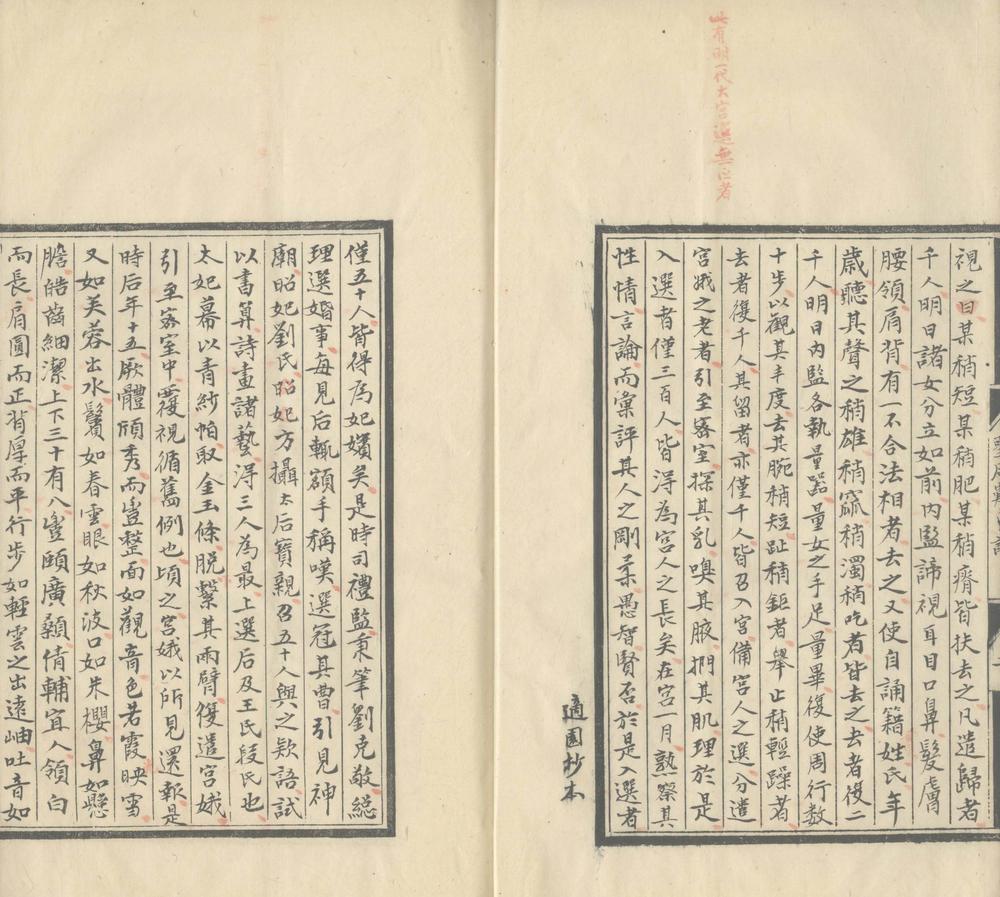 此有明一代大宮選無二者
視之曰某稍短某稍肥某稍瘠皆扶去之凡遣歸者
千人明日諸女分立如前內監諦視耳目口鼻髮膚
腰領肩背有一不合法相者去之又使自誦籍姓氏年
歲聽其聲之稍雄稍窳稍濁稍吃者皆去之去者復二
千人明日內監各執量器量女之手足量畢復使周行數
十步以觀其丰度去其腕稍短趾稍鉅者舉止稍輕躁者
去者復千人其留者亦僅千人皆召入宮備宮人之選分遣
宮娥之老者引至密室探其乳嗅其腋捫其肌理於是
入選者僅三百人皆得為宮人之長矣在宮一月熟察其
性情言論而彙評其人之剛柔愚智賢否於是入選者
適園抄本
僅五十人皆得為妃嬪矣是時司禮監秉筆劉克敬總
理選婚事每見后輒額手稱嘆選冠其曹引見神
廟昭妃劉氏昭妃方攝太后寶親召五十人與之欵語試
以書算詩畫諸藝得三人為最上選后及王氏段氏也
太妃幕以青紗帕取金玉條脫繫其兩臂復遣宮娥
引至密室中覆視循舊例也頃之宮娥以所見還報是
時后年十五厥體頎秀而豐整面如觀音色若霞映雪
又如芙蓉出水鬢如春雲眼如秋波口如朱櫻鼻如懸
膽皓齒細潔上下三十有八豐頤廣顙倩輔宜人領白
而長肩圓而正背厚而平行步如輕雲之出遠岫吐音如